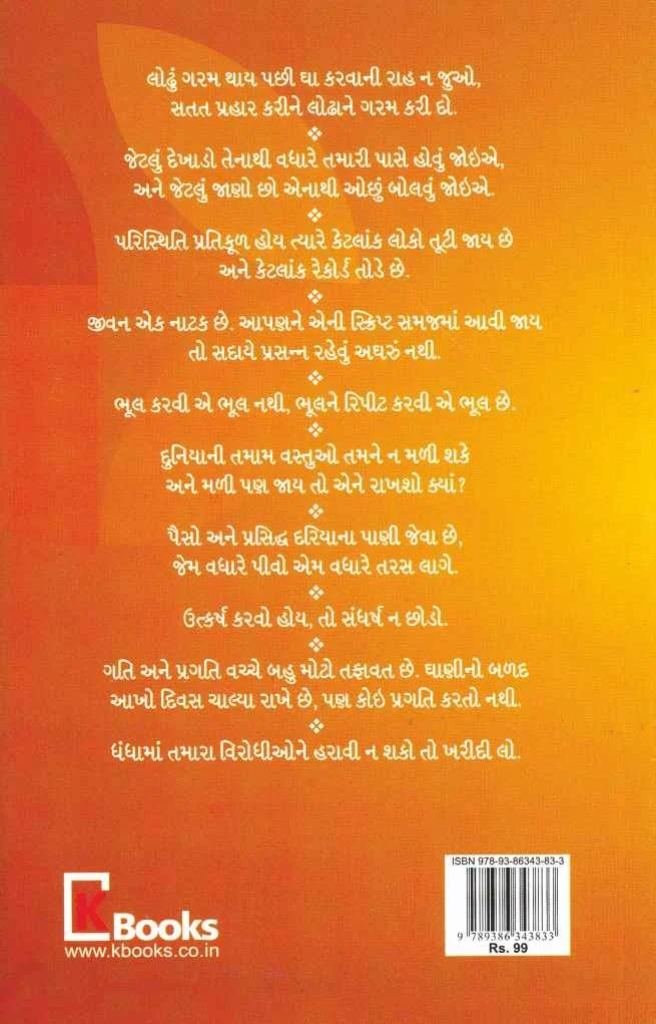 લોઢું ગરમ થાય પછી ઘા કરવાની રાહ ન જુઓ,
સતત પ્રહાર કરીને લોઢાને ગરમ કરી દો.
જેટલું દેખાડો તેનાથી વધારે તમારી પાસે હોવું જોઇએ,
અને જેટલું જાણો છો એનાથી ઓછું બોલવું જોઇએ.
પરિસ્થિતિ પ્રતિકૂળ હોય ત્યારે કેટલાંક લોકો તૂટી જાય છે
અને કેટલાંક રેકોર્ડ તોડે છે.
જીવન એક નાટક છે. આપણને એની સ્ક્રિપ્ટ સમજમાં આવી જાય
તો સદાયે પ્રસન્ન રહેવું અઘરું નથી.
ભૂલ કરવી એ ભૂલ નથી, ભૂલને રિપીટ કરવી એ ભૂલ છે.
દુનિયાની તમામ વસ્તુઓ તમને ન મળી શકે
અને મળી પણ જાય તો એને રાખશો ક્યાં?
પૈસો અને પ્રસિદ્ધ દરિયાના પાણી જેવા છે,
જેમ વધારે પીવો એમ વધારે તરસ લાગે.
ઉત્કર્ષ કરવો હોય, તો સંઘર્ષ ન છોડો.
ગતિ અને પ્રગતિ વચ્ચે બહુ મોટો તફાવત છે. ઘાણીનો બળદ
આખો દિવસ ચાલ્યા રાખે છે, પણ કોઇ પ્રગતિ કરતો નથી.
ધંધામાં તમારા વિરોધીઓને હરાવી ન શકો તો ખરીદી લો.
K Books
www.kbooks.co.in
ISBN 978-93-86343-83-3
9 789386 343833
Rs. 99